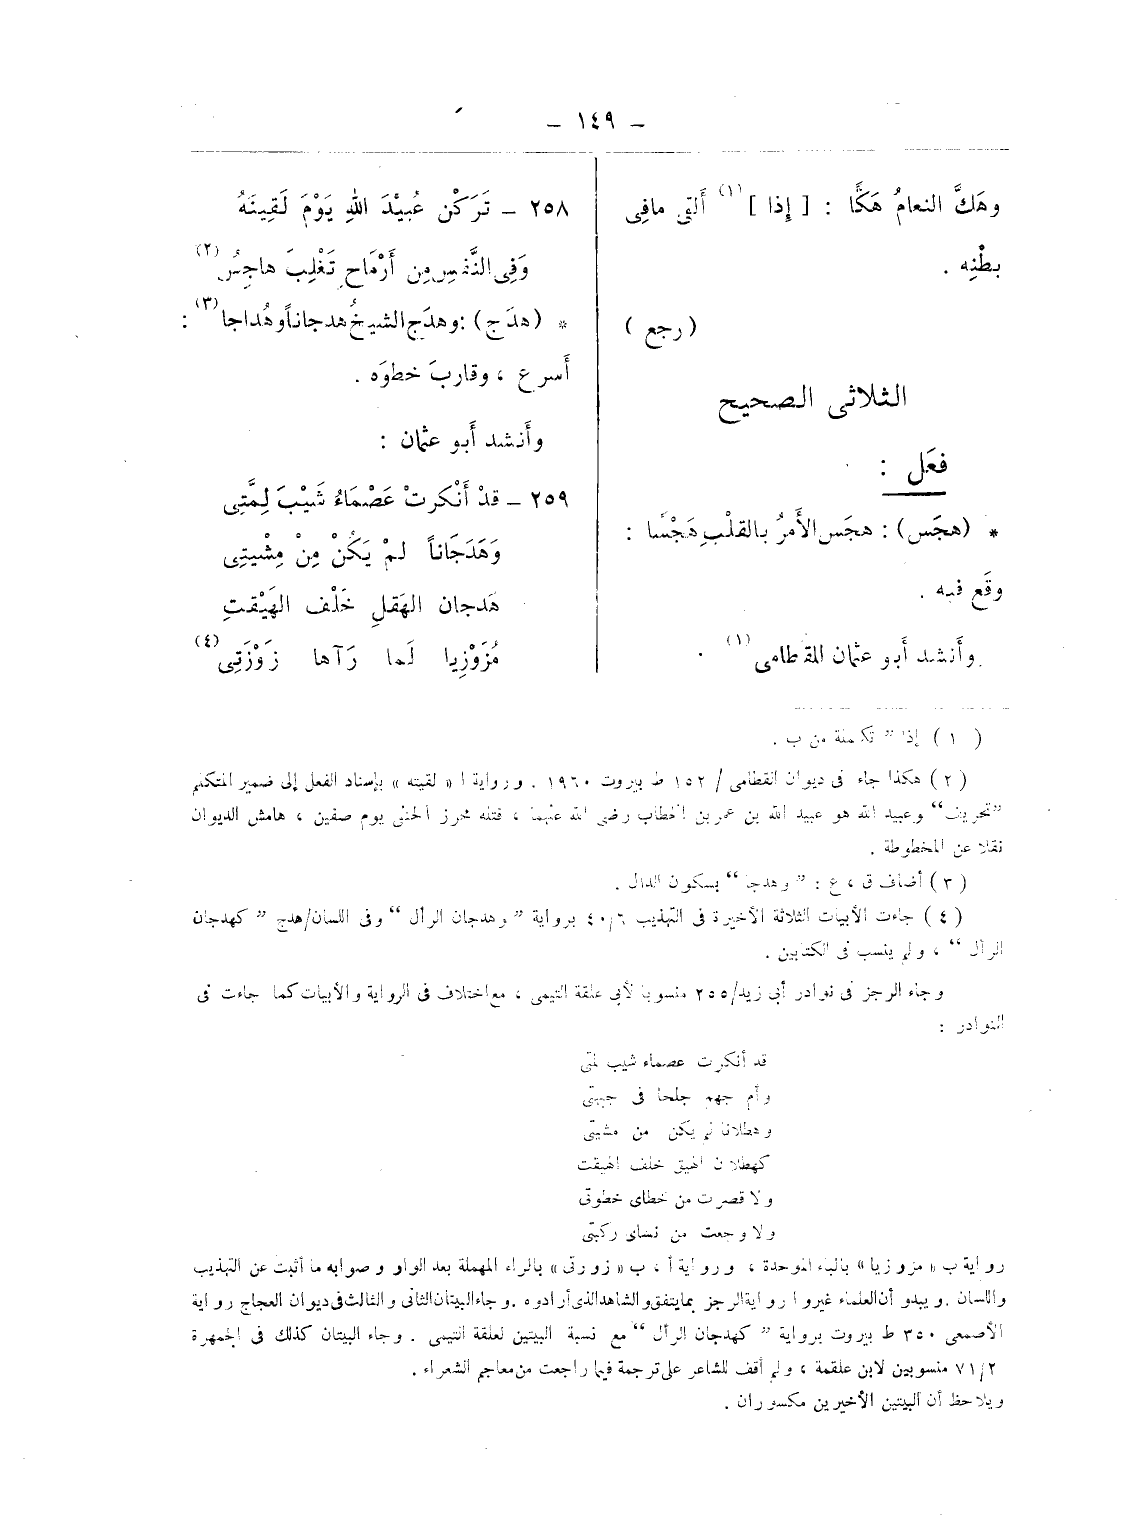 – ١٤٩ –
وهَكَّ النعامُ هَكًّا : [ إِذا ] (١) أَلقى مافِى
بطْنِه .
( رجع )
الثلاثى الصحيح
فعَل :
* (هجَس) : هجَس الأَمرُ بالقلْبِ هَجْسًا :
وقَع فيه .
وأَنشد أَبو عثمان للقطامى (١) .
٢٥٨ – تَرَكْن عُبيْدَ اللهِ يَوْمَ لَقِينَهُ
وَفِى النَّفسِ مِن أَرْمَاحِ تَغْلِبَ هاجِسُ (٢)
* (هدَج) : وهدَج الشيخُ هدجاناً وهُداجا (٣) :
أَسرع ، وقاربَ خطوَه .
وأَنشد أَبو عثمان :
٢٥٩ – قدْ أَنْكرتْ عَصْمَاءُ شَيْبَ لِمَّتِى
وَهَدَجَاناً لمْ يَكُنْ مِنْ مِشْيتِى
هَدجان الهَقلِ خَلْف الهَيْقتِ
مُزَوْزِيا لَما رَآها زَوْزَتِى (٤)
( ١ ) إذا ” تكملة من ب .
( ٢ ) هكذا جاء فى ديوان القطامى / ١٥٢ ط بيروت ١٩٦٠ . ورواية ا « لقيته » بإسناد الفعل إلى ضمير المتكلم
”تحريف“ وعبيد الله هو عبيد الله بن عمر بن الخطاب رضى الله عنهما ، قتله محرز الحنفى يوم صفين ، هامش الديوان
نقلا عن المخطوطة .
( ٣ ) أضاف ق ، ع : ” وهدجا “ بسكون الدال .
( ٤ ) جاءت الأبيات الثلاثة الأخيرة فى التهذيب ٤٠/٦ برواية ” وهدجان الرأل “ وفى اللسان/هدج ” كهدجان
الرأل “ ، ولم ينسب فى الكتابين .
وجاء الرجز فى نوادر أبى زيد/٢٥٥ منسوبا لأبى علقة التيمى ، مع اختلاف فى الرواية والأبيات كما جاءت فى
النوادر :
قد أنكرت عصماء شيب لمتى
وأم جهم جلحا فى جبهتى
وهطلانا لم يكن من مشيتى
كهطلان الهيق خلف الهيقت
ولا قصرت من خطاى خطوتى
ولا وجعت من نساى ركبتى
رواية ب « مزوزيا » بالباء الموحدة ، ورواية أ ، ب « زورتى » بالراء المهملة بعد الواو وصوابه ما أثبت عن التهذيب
واللسان . ويبدو أن العلماء غيروا رواية الرجز بما يتفق والشاهد الذى أرادوه . وجاء البيتان الثانى والثالث فى ديوان العجاج رواية
الأصمعى ٣٥٠ ط بيروت برواية ” كهدجان الرأل “ مع نسبة البيتين لعلقة التيمى . وجاء البيتان كذلك فى الجمهرة
٧١/٢ منسوبين لابن علقمة ، ولم أقف للشاعر على ترجمة فيما راجعت من معاجم الشعراء .
ويلاحظ أن البيتين الأخيرين مكسوران .